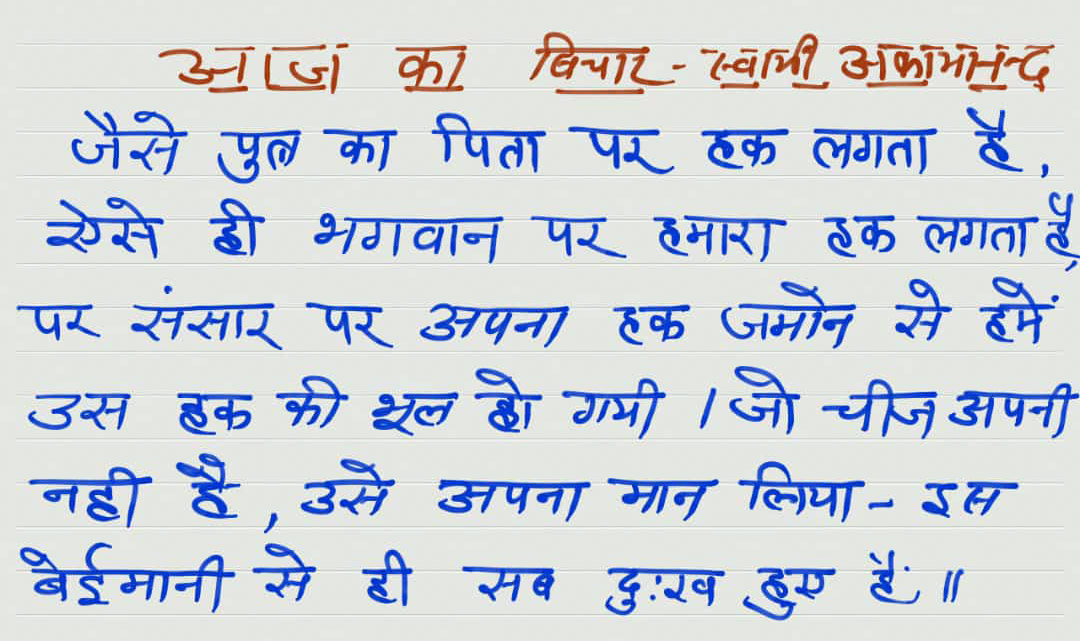 आज का विचार - स्वामी अकामानन्द
जैसे पुत्र का पिता पर हक लगता है,
ऐसे ही भगवान पर हमारा हक लगता है,
पर संसार पर अपना हक जमाने से हमें
उस हक की भूल हो गयी । जो चीज अपनी
नही है, उसे अपना मान लिया - इस
बेईमानी से ही सब दुःख हुए हैं ॥